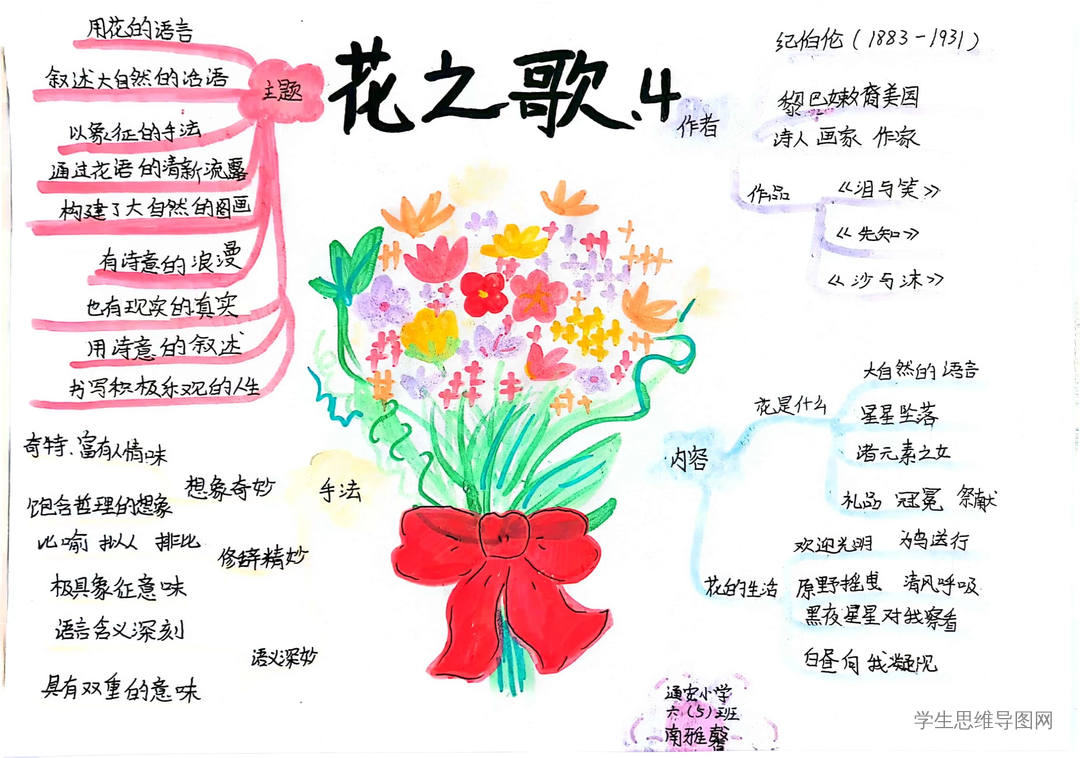 花之歌.4
主题
用花的语言
叙述大自然的话语
以象征的手法
通过花语的清新流露
构建了大自然的图画
有诗意的浪漫
也有现实的真实
用诗意的叙述
书写积极乐观的人生
作者
纪伯伦(1883-1931)
黎巴嫩裔美国
诗人 画家 作家
作品
《泪与笑》
《先知》
《沙与沫》
手法
想象奇妙
奇特、富有人情味
饱含哲理的想象
修辞精妙
比喻 拟人 排比
极具象征意味
语义深妙
语言含义深刻
具有双重的意味
内容
花是什么
大自然的语言
星星坠落
诸元素之女
礼品 冠冕 祭献
花的生活
欢迎光明 为鸟送行
原野摇曳 清风呼吸
黑夜星星对我察看
白昼向我凝视
通安小学
六(5)班
南雅馨
学生思维导图网